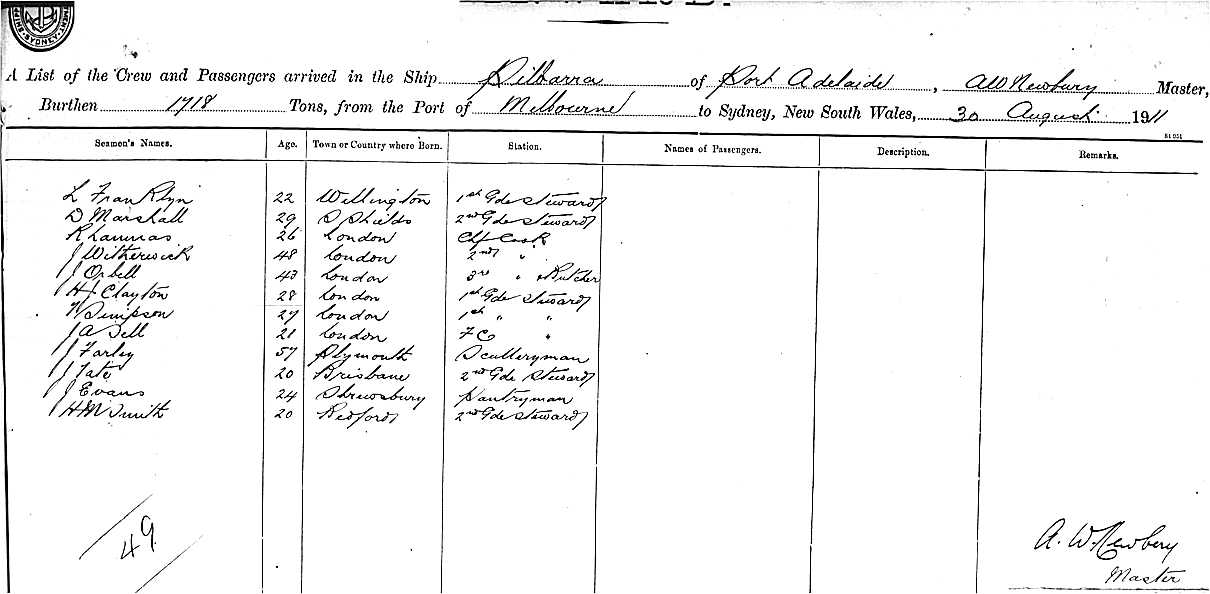 SYDNEY
A List of the Crew and Passengers arrived in the Ship Pilbarra of Port Adelaide, AW Newbury Master,
Burthen 1718 Tons, from the Port of Melbourne to Sydney, New South Wales, 30 August 1911
81051
Seamen's Names. Age. Town or Country where Born. Station. Names of Passengers. Description. Remarks.
L Franklyn 22 Wellington 1st Gde Steward
D Marshall 29 S Shields 2nd Gde Steward
R 26 London Chf Cook
J Witherwick 48 London 2nd "
J Orbell 43 London 3rd " & Butcher
H J Clayton 28 London 1st Gde Steward
Simpson 27 London 1st " "
J A Dell 21 London FC "
J Farley 57 Plymouth Sculleryman
J Tate 20 Brisbane 2nd Gde Steward
J Evans 24 Shrewsbury Pantryman
H M Smith 20 Bedford 2nd Gde Steward
49
A. W. Newbery
Master